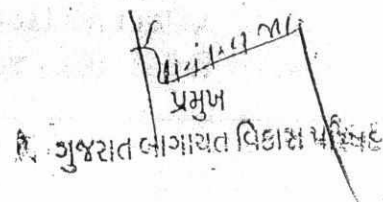 પ્રમુખ
ગુજરાત બાગાયત વિકાસ પરિષદ